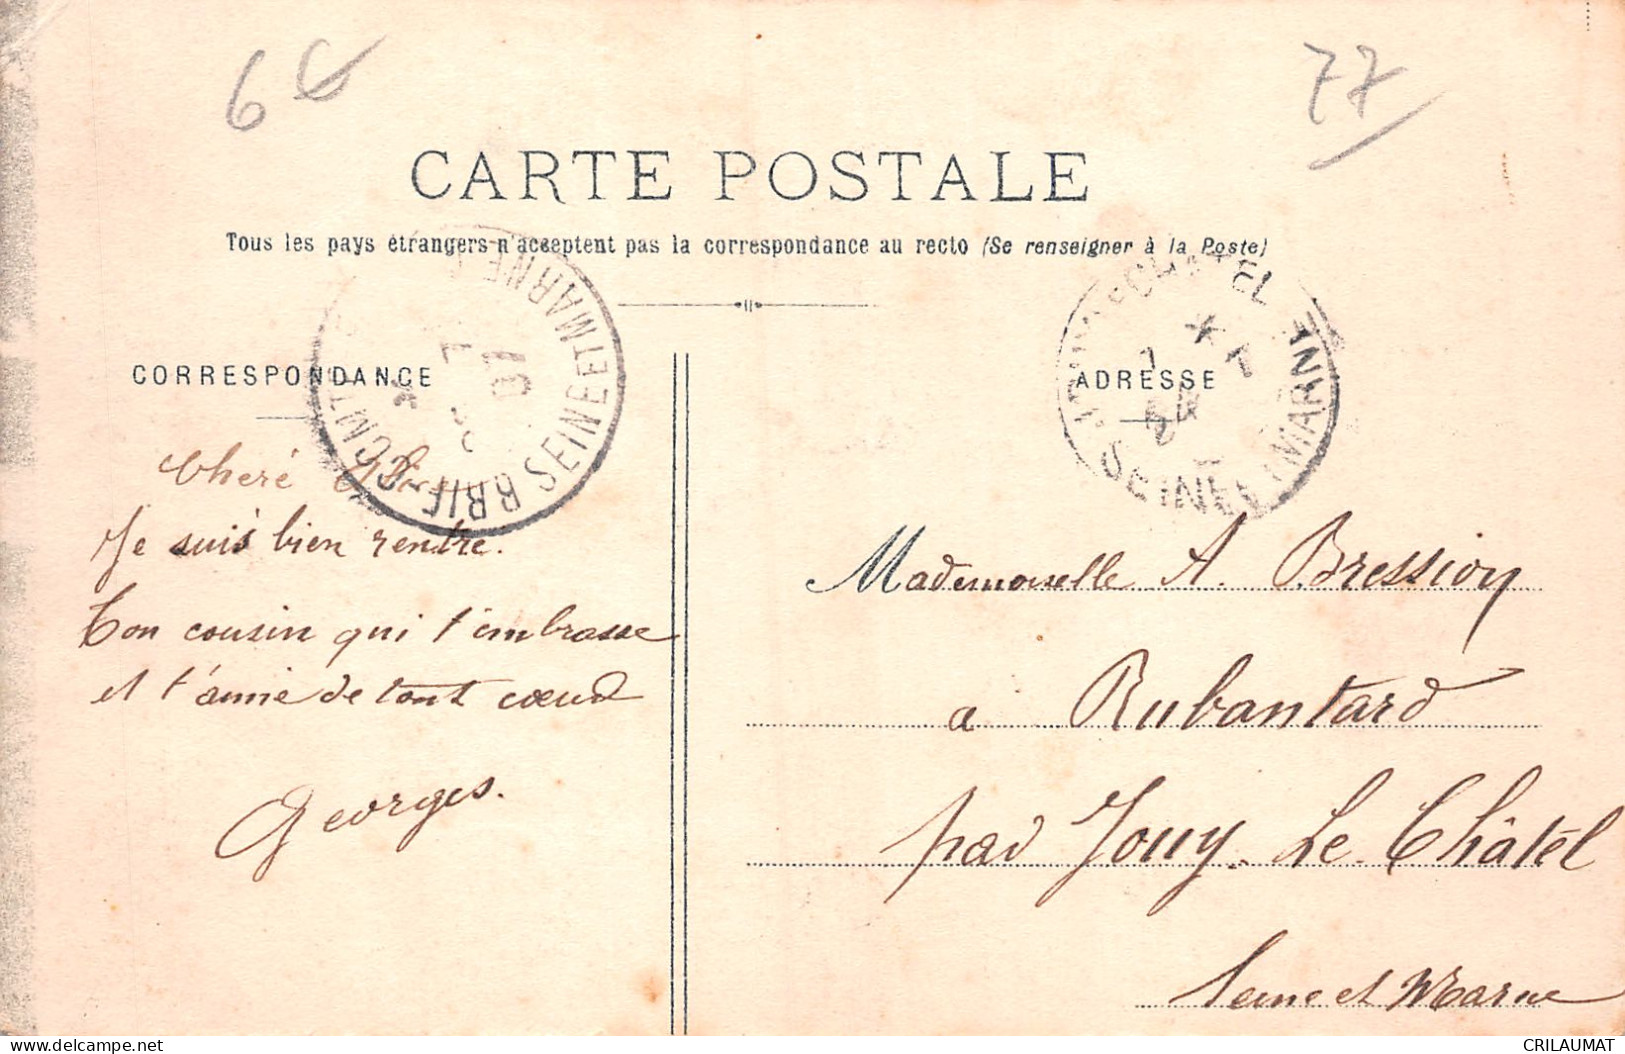 6 €
77
CARTE POSTALE
Tous les pays étrangers n'acceptent pas la correspondance au recto (Se renseigner à la Poste)
CORRESPONDANCE
Cheré
Je suis bien rentre.
Ton cousin qui t'embrasse
et t'aime de tout coeur
Georges.
BRIE-COMTE SEINE ET MARNE
07
ADRESSE
SEINE ET MARNE
Mademoiselle A. Bression
a Rubantard
par Jouy-Le-Châtél
Seine et Marne
CRILAUMAT